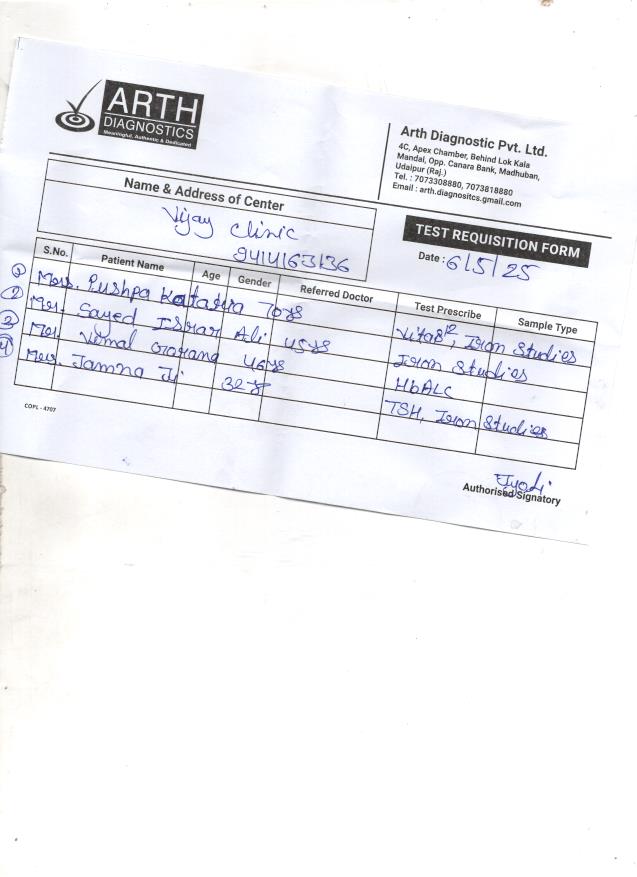 ARTH
DIAGNOSTICS
Meaningful, Authentic & Dedicated
Arth Diagnostic Pvt. Ltd.
4C, Apex Chamber, Behind Lok Kala
Mandal, Opp. Canara Bank, Madhuban,
Udaipur (Raj.)
Tel. : 7073308880, 7073818880
Email : arth.diagnositcs.gmail.com
Name & Address of Center
Vijay Clinic
9414163136
TEST REQUISITION FORM
Date : 6/5/25
S.No. Patient Name Age Gender Referred Doctor Test Prescribe Sample Type
Mrs. Pushpa Kataria 70ys VitaB12, Iron Studies
2 Mr. Sayed Israr Ali 45ys Iron Studies
3 Mr. Vimal 46ys HbALC
4 Mrs. Jamna Ji 32y TSH, Iron Studies
COPL - 4707
Jyoti
Authorised Signatory